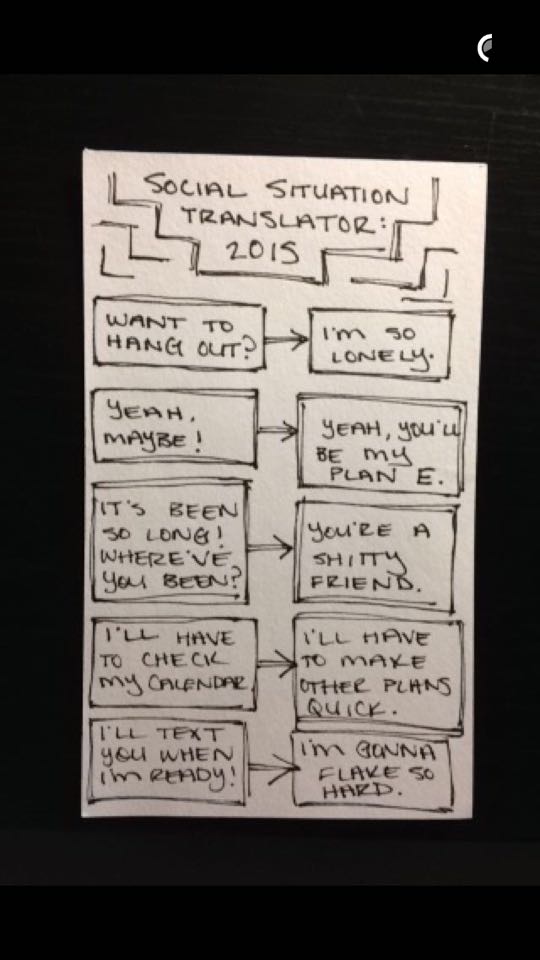 SOCIAL SITUATION
TRANSLATOR:
2015
WANT TO
HANG OUT?
I'M SO
LONELY.
YEAH,
MAYBE!
YEAH, YOU'LL
BE MY
PLAN E.
IT'S BEEN
SO LONG!
WHERE'VE
YOU BEEN?
YOU'RE A
SHITTY
FRIEND.
I'LL HAVE
TO CHECK
MY CALENDAR
I'LL HAVE
TO MAKE
OTHER PLANS
QUICK.
I'LL TEXT
YOU WHEN
I'M READY!
I'M GONNA
FLAKE SO
HARD.